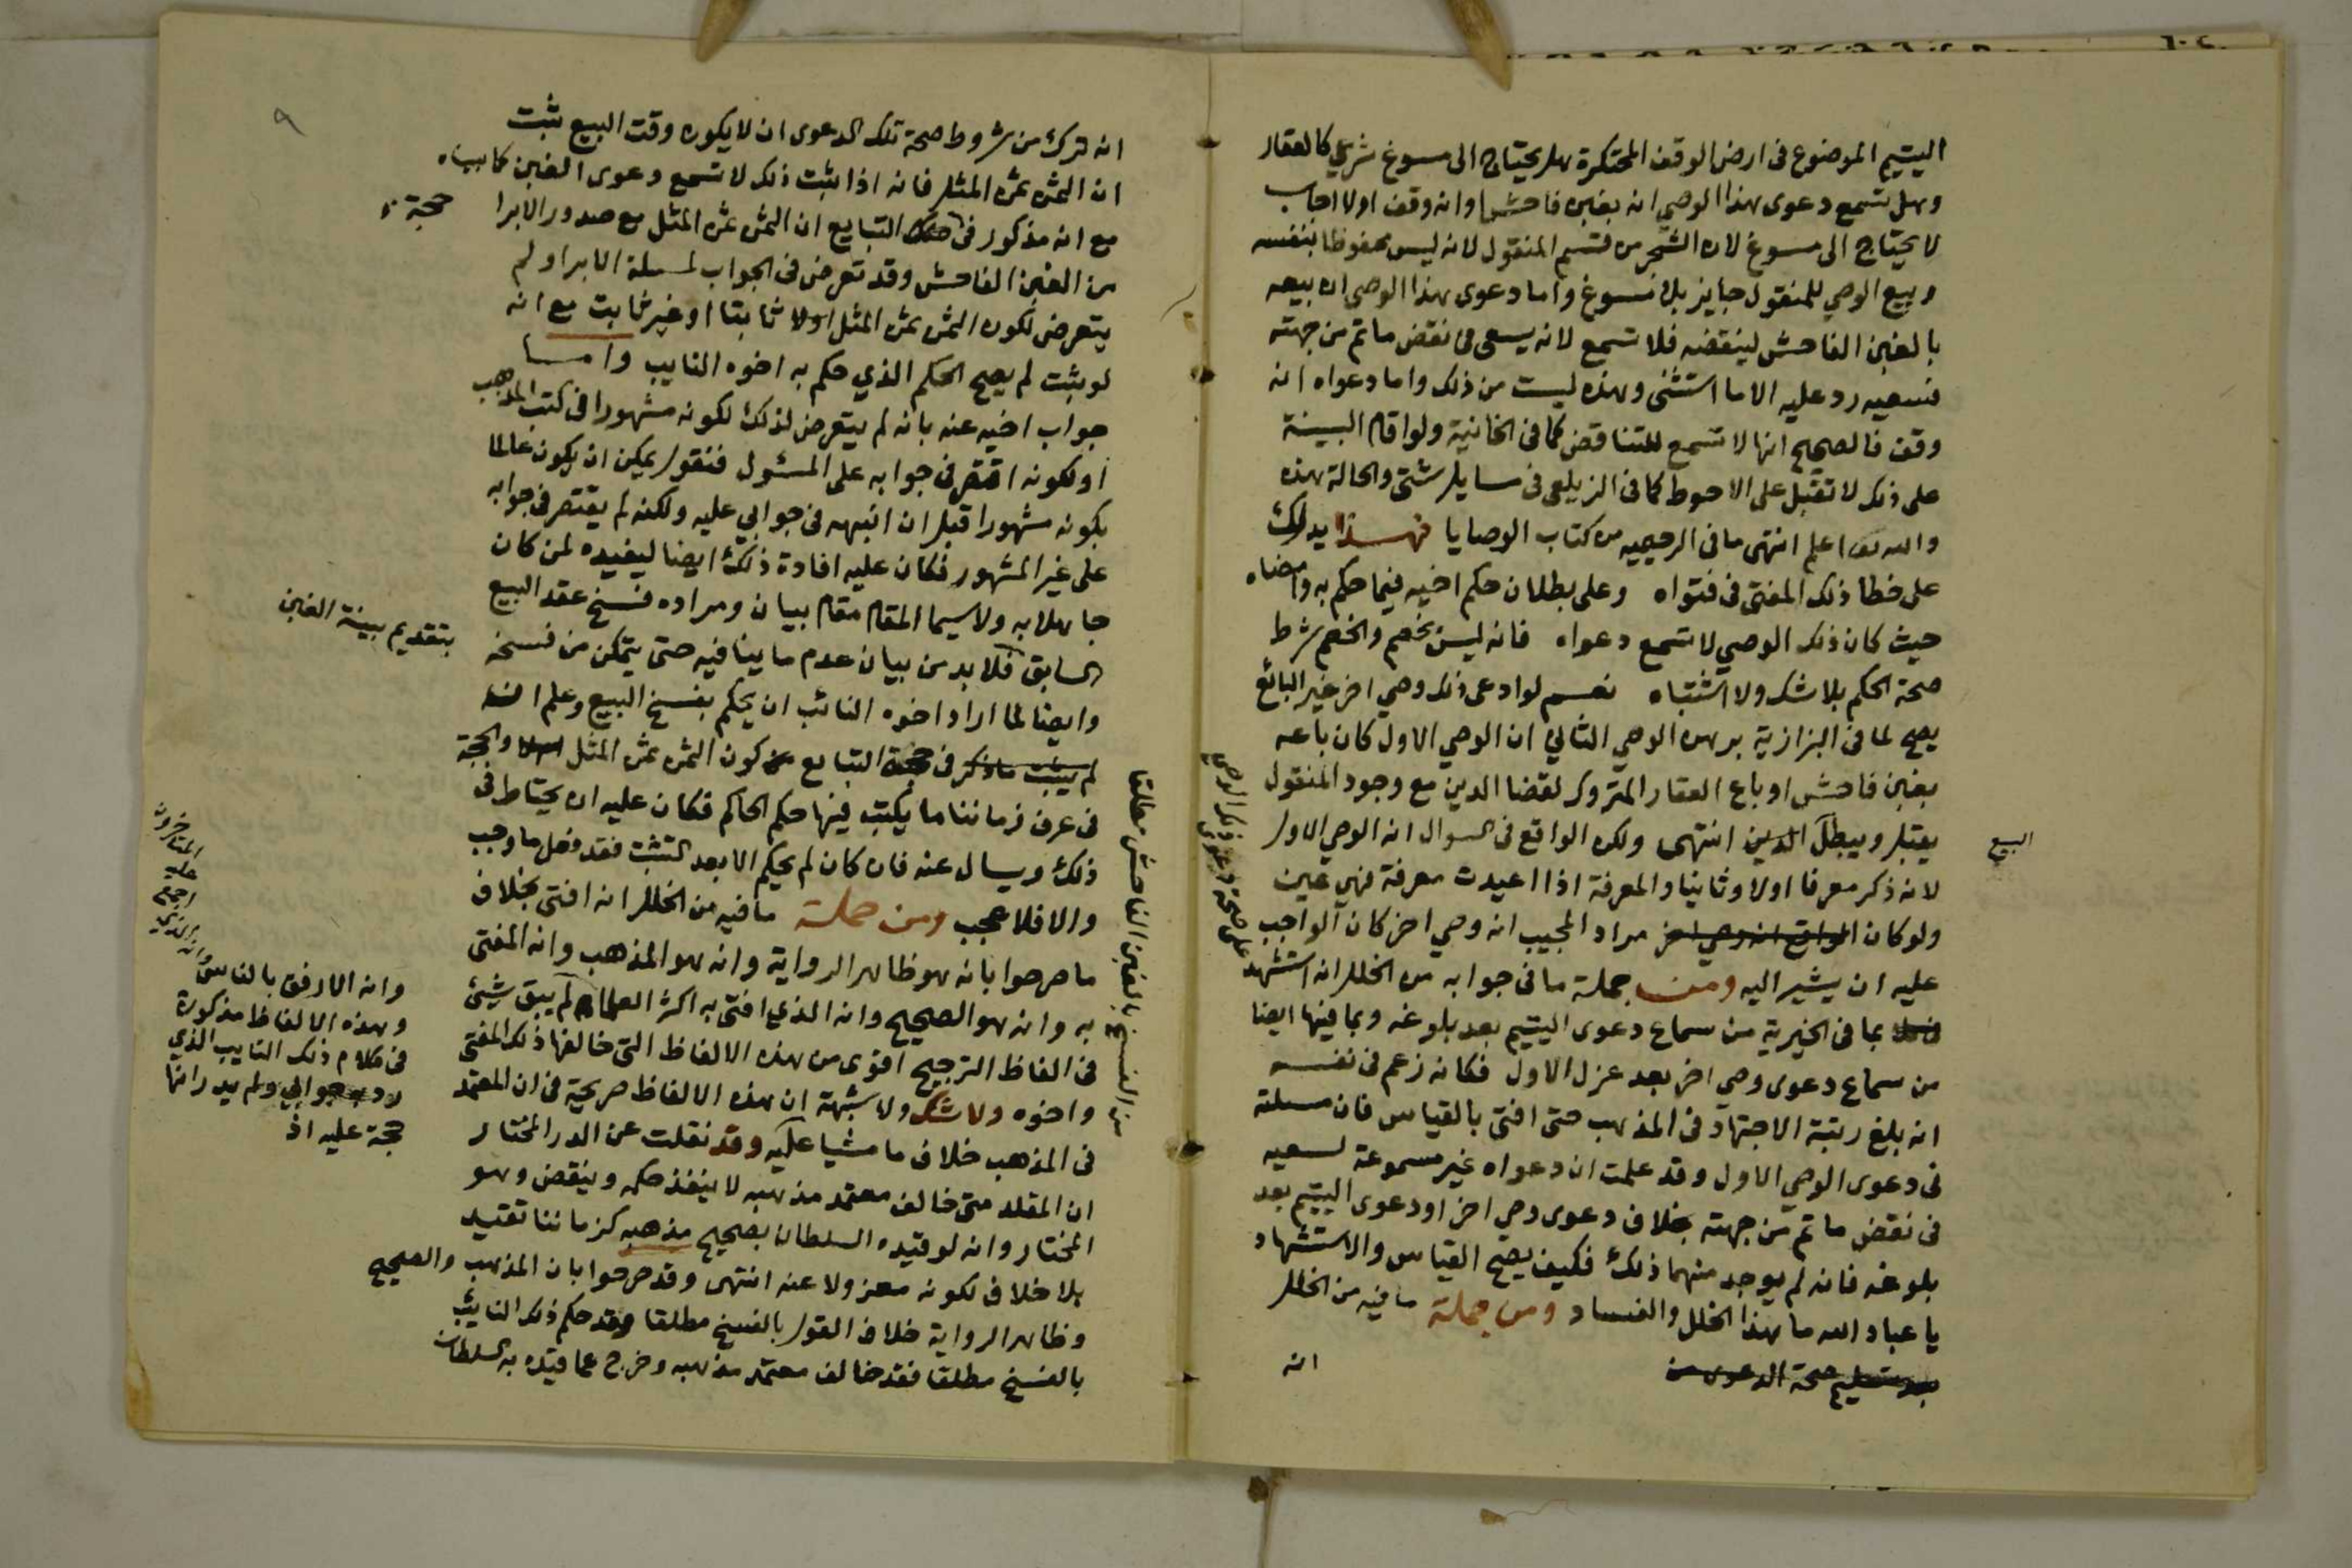 اليتيم الموضوع فى ارض الوقف المحتكرة هل يحتاج الى مسوغ شرعي كالعقار
وهل تسمع دعوى هذا الوصي انه بغبن فاحش او انه وقف اولا اجاب
لا يحتاج الى مسوغ لان الشجر من قسم المنقول لانه ليس محفوظا بنفسه
وبيع الوصي للمنقول جايز بلا مسوغ واما دعوى هذا الوصي ان بيعه
بالغبن الفاحش لينقضه فلا تسمع لانه يسعى فى نقض ما تم من جهته
فسعيه رد عليه الا ما استثنى وهذه ليست من ذلك واما دعواه انه
وقف فالصحيح انها لا تسمع للتناقض كما فى الخانية ولو اقام البينة
على ذلك لا تقبل على الاحوط كما فى الزيلعى فى مسايل شتى والحالة هذه
والله تعا اعلم انتهى ما فى الرحيميه من كتاب الوصايا فهذا يدلك
على خطا ذلك المفتى فى فتواه وعلى بطلان حكم اخيه فيما حكم به وامضاه
حيث كان ذلك الوصي لا تسمع دعواه فانه ليس بخصم والخصم شرط
صحة الحكم بلا شك ولا اشتباه نعم لو ادعى ذلك وصي اخر غير البائع
يصح لما فى البزازية برهن الوصي الثاني ان الوصي الاول كان باعه
بغبن فاحش او باع العقار المتروك لقضا الدين مع وجود المنقول
يقبل ويبطل الدين انتهى ولكن الواقع فى السوال انه الوصي الاول
البيع
لانه ذكر معرفا اولا وثانيا والمعرفة اذا اعيدت معرفة فهي عين
ولو كان الواقع انه وصي اخر مراد المجيب انه وصي اخر كان الواجب
عليه ان يشير اليه ومن جملة ما فى جوابه من الخلل انه استشهد
على صحة دعوى ذلك الوصي
بما فى الخيرية من سماع دعوى اليتيم بعد بلوغه وبما فيها ايضا
من سماع دعوى وصي اخر بعد عزل الاول فكانه زعم فى نفسه
انه بلغ رتبة الاجتهاد فى المذهب حتى افتى بالقياس فان مسلة
فى دعوى الوصي الاول وقد علمت ان دعواه غير مسموعة لسعيه
فى نقض ما تم من جهته بخلاف دعوى وصي اخر او دعوى اليتيم بعد
بلوغه فانه لم يوجد منهما ذلك فكيف يصح القياس والاستشهاد
يا عباد الله ما هذا الخلل والفساد ومن جملة ما فيه من الخلل
بعد تسليم صحة الدعوى من
انه
٩
انه ترك من شروط صحة تلك الدعوى ان لا يكون وقت البيع ثبت
ان الثمن ثمن المثل فانه اذا ثبت ذلك لا تسمع دعوى الغبن كما بيناه
مع انه مذكور فى صك التبايع ان الثمن ثمن المثل مع صدور الابرا
حجة
من الغبن الفاحش وقد تعرض فى الجواب لمسلة الابرا ولم
يتعرض لكون الثمن ثمن المثل اولا ثابتا او غير ثابت مع انه
لو ثبت لم يصح الحكم الذي حكم به اخوه النايب واما
جواب اخيه عنه بانه لم يتعرض لذلك لكونه مشهورا فى كتب المذهب
او لكونه اقتصر فى جوابه على المسئول فنقول يمكن ان يكون عالما
بكونه مشهورا قبل ان انبهه فى جوابي عليه ولكنه لم يقتصر فى جوابه
على غير المشهور فكان عليه افادة ذلك ايضا ليفيده لمن كان
جاهلا به ولا سيما المقام مقام بيان ومراده فسخ عقد البيع
السابق فلا بد من بيان عدم ما ينافيه حتى يتمكن من فسخه
بتقديم بينة الغبن
وايضا لما اراد اخوه النائب ان يحكم بفسخ البيع وعلم انه
لم يثبت ما ذكر فى حجة التبايع من كون الثمن ثمن المثل والحجة
فى عرف زماننا ما يكتب فيها حكم الحاكم فكان عليه ان يحتاط فى
ذلك ويسال عنه فان كان لم يحكم الا بعد التثبت فقد فعل ما وجب
والا فلا عجب ومن جملة ما فيه من الخلل انه افتى بخلاف
من الفسخ بالغبن الفاحش مطلقا
ما صرحوا بانه هو ظاهر الرواية وانه هو المذهب وانه المفتى
به وانه هو الصحيح وانه الذي افتى به اكثر العلماء ولم يبق شيئ
فى الفاظ الترجيح اقوى من هذه الالفاظ التى خالفها ذلك المفتى
واخوه ولا شك ولا شبهة ان هذه الالفاظ صريحة فى ان المعتمد
فى المذهب خلاف ما مشيا عليه وقد نقلت عن الدر المختار
وانه الذي
اجمع
عليه
المتاخرون
وانه الارفق بالناس
وهذه الالفاظ مذكورة
فى كلام ذلك النايب الذي
رد به جوابي ولم يدر انها
حجة عليه اذ
ان المقلد متى خالف معتمد مذهبه لا ينفذ حكمه وينقض وهو
المختار وانه لو قيده السلطان بصحيح مذهبه كزماننا تقيد
بلا خلاف لكونه معزولا عنه انتهى وقد صرحوا بان المذهب والصحيح
وظاهر الرواية خلاف القول بالفسخ مطلقا وقد حكم ذلك النايب
بالفسخ مطلقا فقد خالف معتمد مذهبه وخرج عما قيده به السلطان